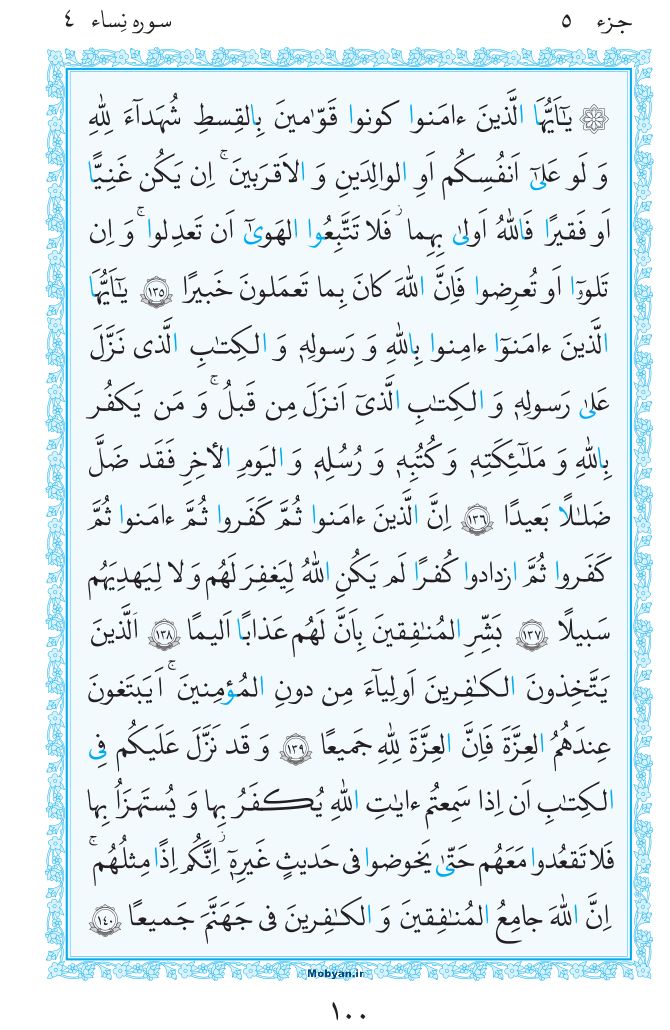 جزء ٥ سوره نِساء ٤
يٰٓاَيُّهَا الَّذينَ ءامَنوا كونوا قَوّٰمينَ بِالقِسطِ شُهَدآءَ لِلّٰهِ
وَ لَو عَلىٰٓ اَنفُسِكُم اَوِ الوالِدَينِ وَ الاَقرَبينَ ۚ اِن يَكُن غَنِيًّا
اَو فَقيرًا فَاللّٰهُ اَولىٰ بِهِما ۖ فَلا تَتَّبِعُوا الهَوىٰٓ اَن تَعدِلوا ۚ وَ اِن
تَلوۥٓا اَو تُعرِضوا فَاِنَّ اللّٰهَ كانَ بِما تَعمَلونَ خَبيرًا ﴿١٣٥﴾ يٰٓاَيُّهَا
الَّذينَ ءامَنوٓا ءامِنوا بِاللّٰهِ وَ رَسولِهٖ وَ الكِتٰبِ الَّذى نَزَّلَ
عَلىٰ رَسولِهٖ وَ الكِتٰبِ الَّذىٓ اَنزَلَ مِن قَبلُ ۚ وَ مَن يَكفُر
بِاللّٰهِ وَ مَلٰٓئِكَتِهٖ وَ كُتُبِهٖ وَ رُسُلِهٖ وَ اليَومِ الأخِرِ فَقَد ضَلَّ
ضَلٰلًا بَعيدًا ﴿١٣٦﴾ اِنَّ الَّذينَ ءامَنوا ثُمَّ كَفَروا ثُمَّ ءامَنوا ثُمَّ
كَفَروا ثُمَّ ازدادوا كُفرًا لَم يَكُنِ اللّٰهُ لِيَغفِرَ لَهُم وَ لا لِيَهدِيَهُم
سَبيلًا ﴿١٣٧﴾ بَشِّرِ المُنٰفِقينَ بِاَنَّ لَهُم عَذابًا اَليمًا ﴿١٣٨﴾ اَلَّذينَ
يَتَّخِذونَ الكٰفِرينَ اَولِيآءَ مِن دونِ المُؤمِنينَ ۚ اَيَبتَغونَ
عِندَهُمُ العِزَّةَ فَاِنَّ العِزَّةَ لِلّٰهِ جَميعًا ﴿١٣٩﴾ وَ قَد نَزَّلَ عَلَيكُم فِى
الكِتٰبِ اَن اِذا سَمِعتُم ءايٰتِ اللّٰهِ يُكفَرُ بِها وَ يُستَهزَاُ بِها
فَلا تَقعُدوا مَعَهُم حَتّىٰ يَخوضوا فى حَديثٍ غَيرِهٖٓ ۚ اِنَّكُم اِذًا مِثلُهُم ۗ
اِنَّ اللّٰهَ جامِعُ المُنٰفِقينَ وَ الكٰفِرينَ فى جَهَنَّمَ جَميعًا ﴿١٤٠﴾
Mobyan.ir
١٠٠